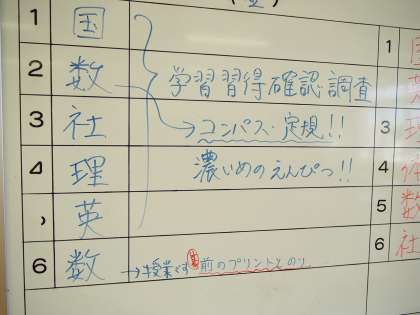 1 国
2 数 学習習得確認調査
3 社 →コンパス・定規!!
4 理 濃いめのえんぴつ!!
英
6 数 →授業です 前のプリントとのり
1
3
4
5 数
6 社